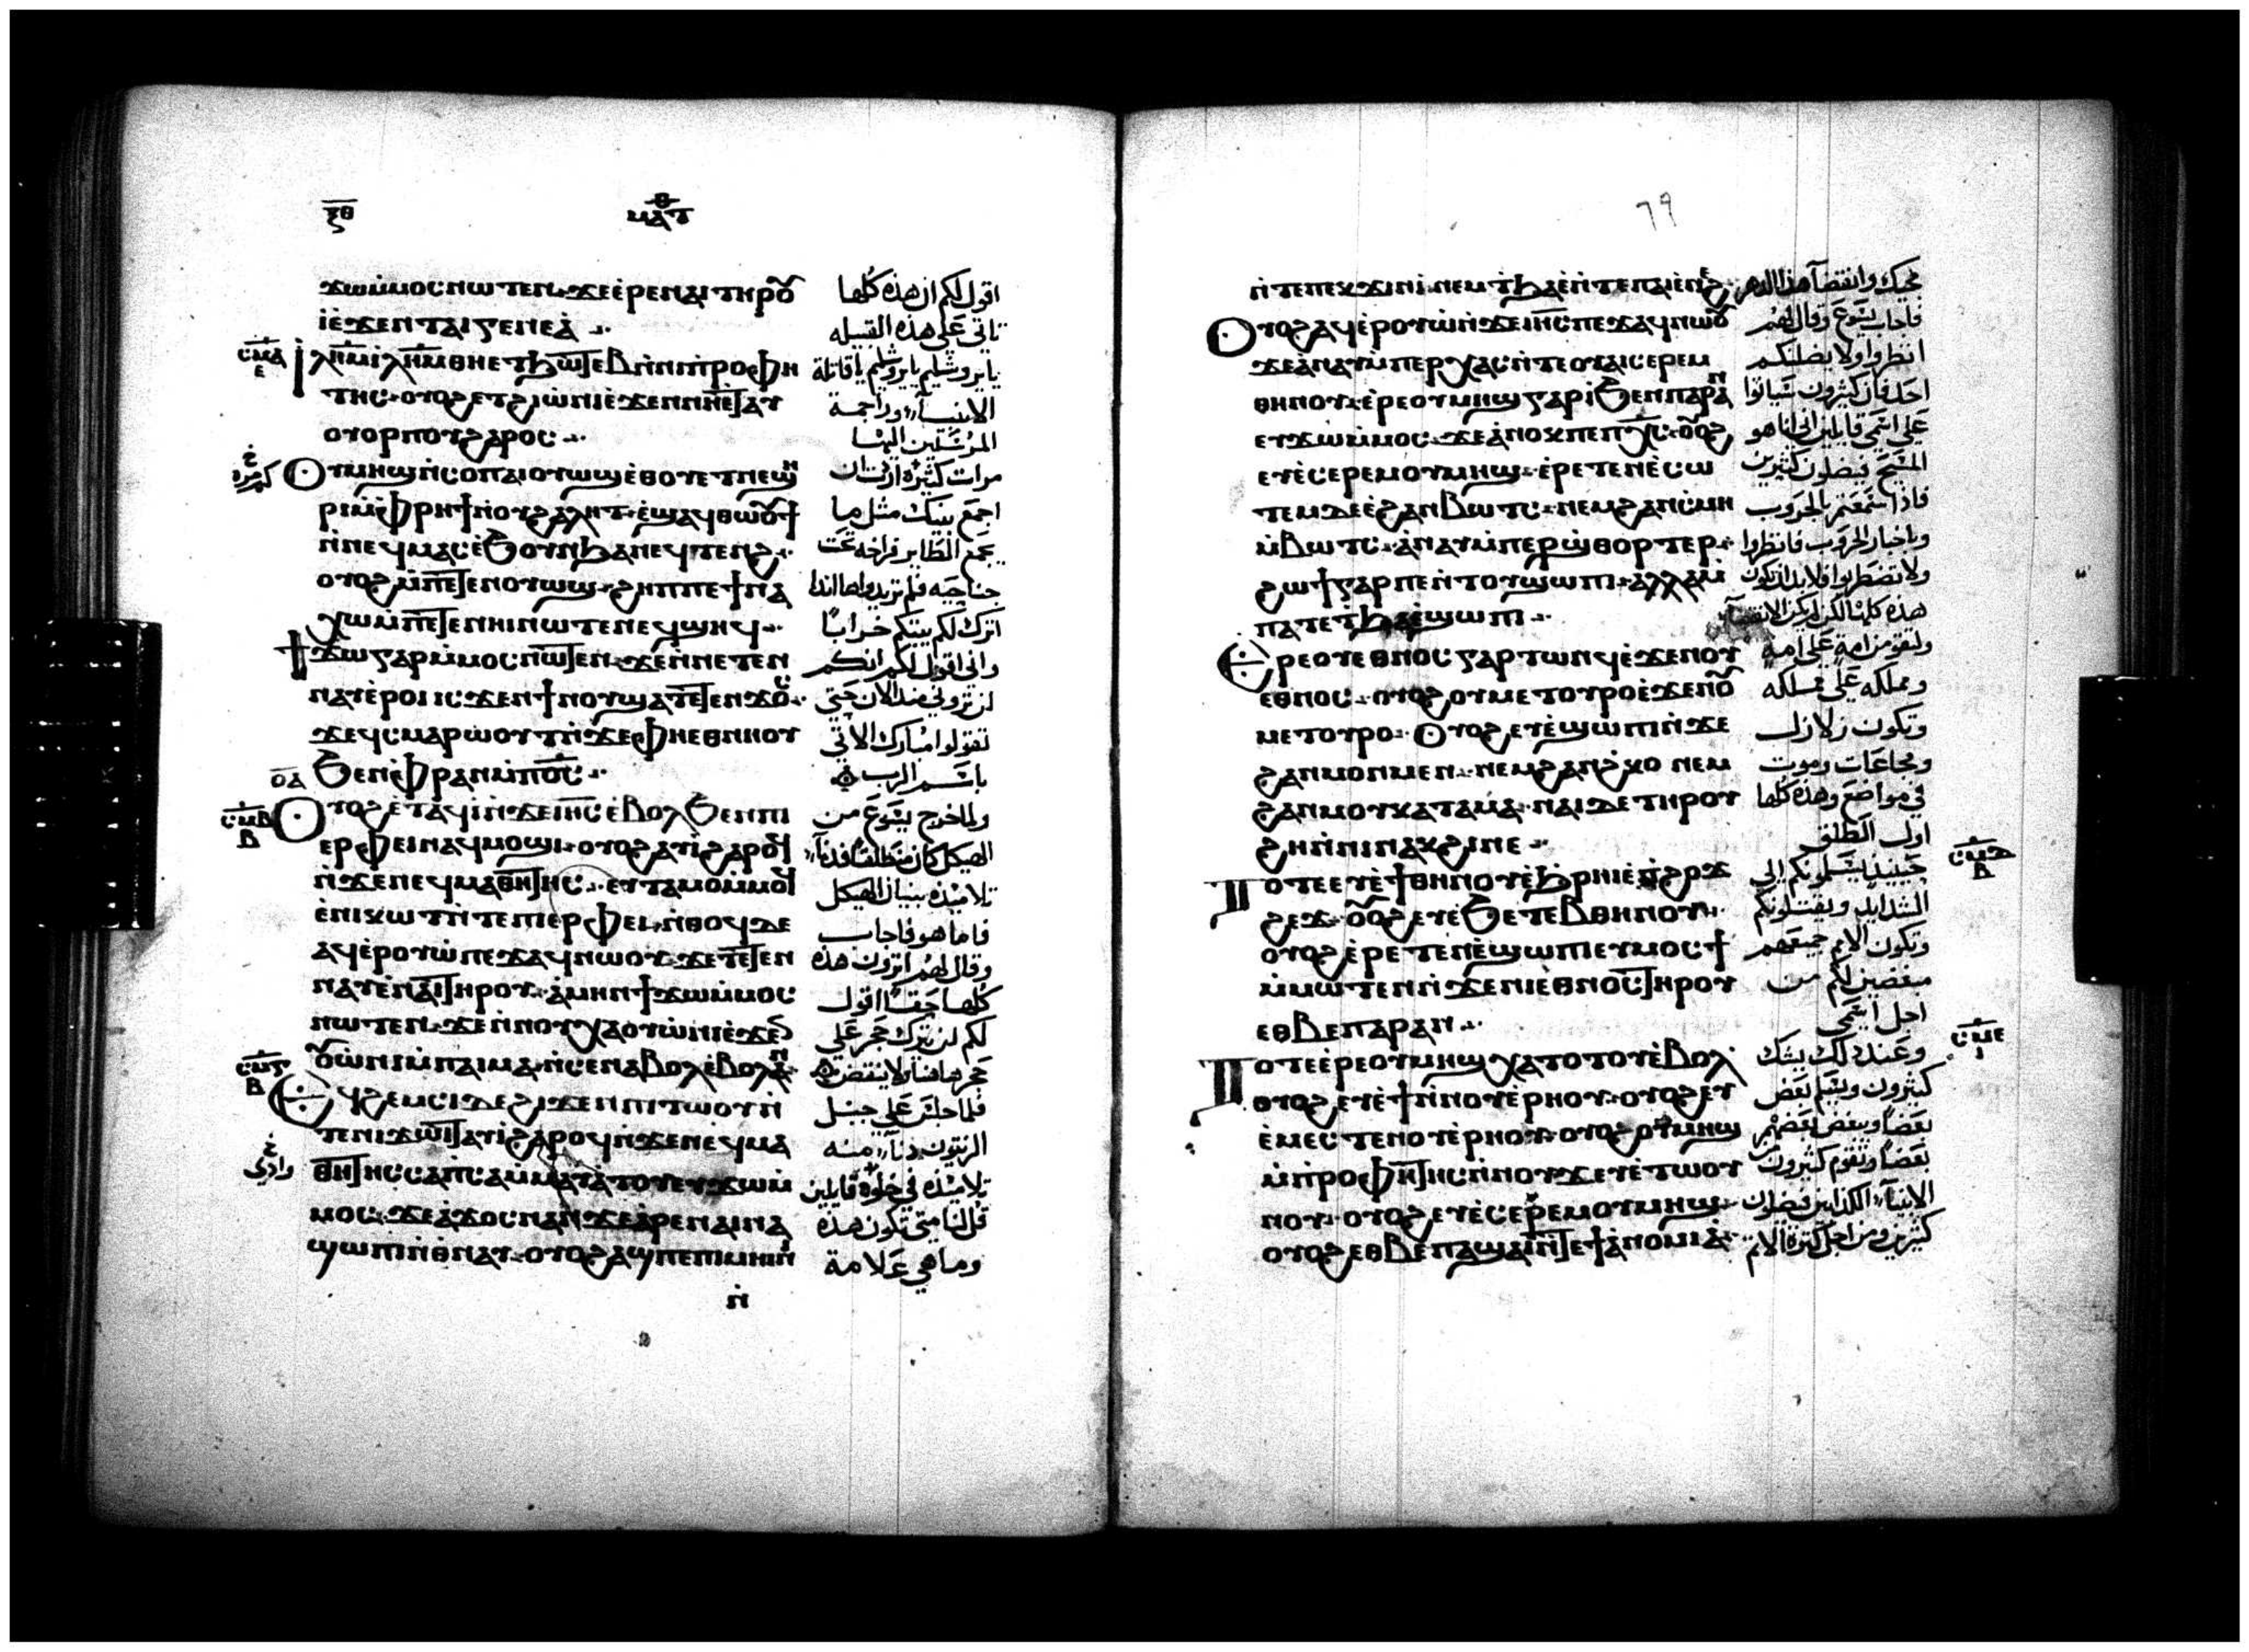 ⲝⲑ
ⲙⲁⲧⲑ
ϫⲱⲙ̇ⲙⲟⲥⲛⲱⲧⲉⲛ·ϫⲉⲉ̇ⲣⲉⲛⲁⲓⲧⲏⲣⲟⲩ
ⲓ̇ⲉ̇ϫⲉⲛⲧⲁⲓⲅⲉⲛⲉⲁ̇
ⲥⲙⲁ
ⲉ
ⲓ̇ⲗ̅ⲏ̅ⲙ̅ⲓ̇ⲗ̅ⲏ̅ⲙ̅ⲑⲏⲉⲧϧⲱⲧⲉⲃⲛ̇ⲛⲓⲡⲣⲟⲫⲏ
ⲧⲏⲥ·ⲟⲩⲟϩⲉⲧϩⲓⲱ̇ⲛⲓⲉ̇ϫⲉⲛⲛⲏⲉⲧⲁⲩ
ⲟⲩⲟⲣⲡⲟⲩϩⲁⲣⲟⲥ
ⲟⲩⲙⲏϣⲛ̇ⲥⲟⲡⲁⲓⲟⲩⲱϣⲉ̇ⲑⲟⲩⲉⲧⲛⲉϣⲏ
ⲣⲓⲙ̇ⲫⲣⲏϯⲛ̇ⲟⲩϩⲁⲗⲏⲧ·ⲉ̇ϣⲁϥⲑⲱⲟⲩϯ
ⲛ̇ⲛⲉϥⲙⲁⲥⲉ̇ϧⲟⲩⲛϧⲁⲛⲉϥⲧⲉⲛϩ
ⲟⲩⲟϩⲙ̇ⲡⲉⲧⲉⲛⲟⲩⲱϣ·ϩⲏⲡⲡⲉϯⲛⲁ
ⲭⲱⲙ̇ⲡⲉⲧⲉⲛⲏⲓⲛⲱⲧⲉⲛⲉϥϣⲏϥ
ϯϫⲱⲅⲁⲣⲙ̇ⲙⲟⲥⲛⲱⲧⲉⲛ·ϫⲉⲛ̇ⲛⲉⲧⲉⲛ
ⲛⲁⲩⲉ̇ⲣⲟⲓⲓⲥϫⲉⲛϯⲛⲟⲩϣⲁⲧⲉⲧⲉⲛϫⲟⲥ
ϫⲉϥⲥⲙⲁⲣⲱⲟⲩⲧⲛ̇ϫⲉⲫⲏⲉⲑⲛⲏⲟⲩ
ϧⲉⲛⲫ̇ⲣⲁⲛⲙ̇ⲡⲟ̅ⲥ̅
ⲟⲁ
ⲥⲙⲃ
ⲃ
ⲟⲩⲟϩⲉ̇ⲧⲁϥⲓ̇ⲛ̇ϫⲉⲓⲏ̅ⲥ̅ⲉ̇ⲃⲟⲗϧⲉⲛⲡⲓ
ⲉⲣⲫⲉⲓⲛⲁϥⲙⲟϣⲓ·ⲟⲩⲟϩⲁⲩⲓ̇ϩⲁⲣⲟϥ
ⲛ̇ϫⲉⲛⲉϥⲙⲁⲑⲏⲧⲏⲥ·ⲉⲩⲧⲁⲙⲟⲙ̇ⲙⲟϥ
ⲉ̇ⲛⲓⲕⲱϯⲛ̇ⲧⲉⲡⲓⲉⲣⲫⲉⲓ·ⲛ̇ⲑⲟϥⲇⲉ
ⲁϥⲉ̇ⲣⲟⲩⲱ̇ⲡⲉϫⲁϥⲛⲱⲟⲩ·ϫⲉⲧⲉⲧⲉⲛ
ⲛⲁⲩⲉ̇ⲛⲁⲓⲧⲏⲣⲟⲩ·ⲁ̇ⲙⲏⲛϯϫⲱⲙ̇ⲙⲟⲥ
ⲛⲱⲧⲉⲛ·ϫⲉⲛ̇ⲛⲟⲩⲭⲁⲟⲩⲱ̇ⲛⲓⲉ̇ϫⲉⲛ
ⲟⲩⲱ̇ⲛⲓⲙ̇ⲡⲁⲓⲙⲁ·ⲛ̇ⲥⲉⲛⲁⲃⲟⲗⲉ̇ⲃⲟⲗⲁⲛ
ⲥⲙⲅ
ⲃ
ⲉϥϩⲉⲙⲥⲓⲇⲉϩⲓϫⲉⲛⲡⲓⲧⲱⲟⲩⲛ̇
ⲧⲉⲛⲓϫⲱⲓⲧⲁⲩⲓ̇ϩⲁⲣⲟϥⲛ̇ϫⲉⲛⲉϥⲙⲁ
ⲑⲏⲧⲏⲥⲥⲁⲡ̇ⲥⲁⲙ̇ⲙⲁⲩⲁⲧⲟⲩⲉⲩϫⲱⲙ̇
ⲙⲟⲥ·ϫⲉⲁ̇ϫⲟⲥⲛⲁⲛϫⲉⲁ̇ⲣⲉⲛⲁⲓⲛⲁ
ϣⲱⲡⲓⲛ̇ⲑⲛⲁⲩ·ⲟⲩⲟϩⲁϣⲡⲉⲡⲓⲙⲏⲓⲛⲓ
ⲛ̇
اقول لكم ان هذه كلها
تاتي على هذه القبيله
يا يروشليم يا يروشليم يا قاتلة
الانبيآء وراجمة
المرسلين اليها
مرات كثيره اردت ان
اجمع بنيك مثل ما
يجمع الطاير فراخه تحت
جناحيه فلم تريدوا هاانذا
اترك لكم بيتكم خرابًا
واني اقول لكم انكم
لن تروني منذ الان حتى
تقولوا مبارك الاتي
باسم الرب
ولما خرج يسوع من
الهيكل كان منطلقا فدنآء
تلاميذه ببنيان الهيكل
فاما هو فاجاب
وقال لهم اترون هذه
كلها حقًا اقول
لكم لن يترك حجر على
حجر هاهنا ولا ينتقض
فلما جلس على جبل
الزيتون دنآء منه
تلاميذه في خلوه قايلين
قل لنا متى تكون هذه
وما هي علامة
79
ⲛ̇ⲧⲉⲡⲉⲕϫⲓⲛⲓ̇·ⲛⲉⲙⲧ̇ϧⲁⲉ̇ⲛ̇ⲧⲉⲡⲁⲓⲉ̇ⲛⲉϩ
ⲟⲩⲟϩⲁϥⲉ̇ⲣⲟⲩⲱ̇ⲛ̇ϫⲉⲓⲏ̅ⲥ̅ⲡⲉϫⲁϥⲛⲱⲟⲩ
ϫⲉⲁ̇ⲛⲁⲩⲙ̇ⲡⲉⲣⲭⲁⲥⲛ̇ⲧⲉⲟⲩⲁⲓⲥⲉⲣⲉⲙ
ⲑⲏⲛⲟⲩ·ⲉ̇ⲣⲉⲟⲩⲙⲏϣⲅⲁⲣⲓ̇ϧⲉⲛⲡⲁⲣⲁⲛ
ⲉⲩϫⲱⲙ̇ⲙⲟⲥ·ϫⲉⲁ̇ⲛⲟⲕⲡⲉⲡⲭ̅ⲥ̅·ⲟⲩⲟϩ
ⲉⲩⲉ̇ⲥⲉⲣⲉⲙⲟⲩⲙⲏϣ·ⲉ̇ⲣⲉⲧⲉⲛⲉ̇ⲥⲱ
ⲧⲉⲙⲇⲉⲉ̇ϩⲁⲛⲃⲱⲧⲥ·ⲛⲉⲙϩⲁⲛⲥ̇ⲙⲏ
ⲙ̇ⲃⲱⲧⲥ·ⲁ̇ⲛⲁⲩⲙ̇ⲡⲉⲣϣ̇ⲑⲟⲣⲧⲉⲣ
ϩⲱϯⲅⲁⲣⲡⲉⲛ̇ⲧⲟⲩϣⲱⲡⲓ·ⲁⲗⲗⲁⲙ̇
ⲡⲁⲧⲉⲧ̇ϧⲁⲉ̇ϣⲱⲡⲓ
ⲉⲣⲉⲟⲩⲉⲑⲛⲟⲥⲅⲁⲣⲧⲱⲛϥⲉ̇ϫⲉⲛⲟⲩ
ⲉⲑⲛⲟⲥ·ⲟⲩⲟϩⲟⲩⲙⲉⲧⲟⲩⲣⲟⲉ̇ϫⲉⲛⲟⲩ
ⲙⲉⲧⲟⲩⲣⲟ·ⲟⲩⲟϩⲉⲩⲉ̇ϣⲱⲡⲓⲛ̇ϫⲉ
ϩⲁⲛⲙⲟⲛⲙⲉⲛ·ⲛⲉⲙϩⲁⲛϩ̇ⲕⲟ ⲛⲉⲙ
ϩⲁⲛⲙⲟⲩⲕⲁⲧⲁⲙⲁ·ⲛⲁⲓⲇⲉⲧⲏⲣⲟⲩ
ϩⲏⲛ̇ⲛⲓⲛⲁⲕϩⲓⲛⲉ
ⲥⲙⲇ
ⲃ
ⲧⲟⲧⲉⲉⲩⲉ̇ϯⲑⲏⲛⲟⲩⲉ̇ϧⲣⲏⲓⲉ̇ⲡ̇ϩⲟϫ
ϩⲉϫ·ⲟⲩⲟϩⲉⲩⲉ̇ϧⲉⲧⲉⲃⲑⲏⲛⲟⲩ
ⲟⲩⲟϩⲉ̇ⲣⲉⲧⲉⲛⲉ̇ϣⲱⲡⲓⲉⲩⲙⲟⲥϯ
ⲙ̇ⲙⲱⲧⲉⲛⲛ̇ϫⲉⲛⲓⲉⲑⲛⲟⲥⲧⲏⲣⲟⲩ
ⲉⲑⲃⲉⲡⲁⲣⲁⲛ
ⲥⲙⲉ
ⲓ
ⲧⲟⲧⲉⲉ̇ⲣⲉⲟⲩⲙⲏϣⲭⲁⲧⲟⲧⲟⲩⲉ̇ⲃⲟⲗ
ⲟⲩⲟϩⲉⲩⲉ̇ϯⲛ̇ⲛⲟⲩⲉ̇ⲣⲏⲟⲩ·ⲟⲩⲟϩⲉⲩ
ⲉ̇ⲙⲉⲥⲧⲉⲛⲟⲩⲉ̇ⲣⲏⲟⲩ·ⲟⲩⲟϩⲟⲩⲙⲏϣ
ⲙ̇ⲡ̇ⲣⲟⲫⲏⲧⲏⲥⲛ̇ⲛⲟⲩϫⲉⲩⲉ̇ⲧⲱⲟⲩ
ⲛⲟⲩ·ⲟⲩⲟϩⲉⲩⲉ̇ⲥⲉⲣⲉⲙⲟⲩⲙⲏϣ
ⲟⲩⲟϩⲉⲑⲃⲉⲡⲁϣⲁⲓⲛ̇ⲧⲉϯⲁ̇ⲛⲟⲙⲓⲁ̇
مجيك وانقضآء هذا الدهر
فاجاب يسوع وقال لهم
انظروا ولا يضلنكم
احد فان كثيرون سياتوا
على اسمي قايلين اني انا هو
المسيح فيضلون كثيرين
فاذا سمعتم بالحروب
وباخبار الحروب فانظروا
ولا تضطربوا فلابد ان تكون
هذه كلها لكن لم يكن الانقضآء
ولتقومن امة على امة
ومملكه على مملكه
وتكون زلازل
ومجاعات وموت
في مواضع وهذه كلها
اول الطلق
حينيذ يسلمونكم الى
الشدايد ويقتلونكم
وتكون الامم جميعهم
مبغضين لكم من
اجل اسمي
وعند ذلك يشك
كثيرون ويسلم بعض
بعضًا ويبغض بعضهم
بعضًا وتقوم كثيرون
الانبيآء الكذابين فيضلون
كثيرين ومن اجل كثرة الاثم